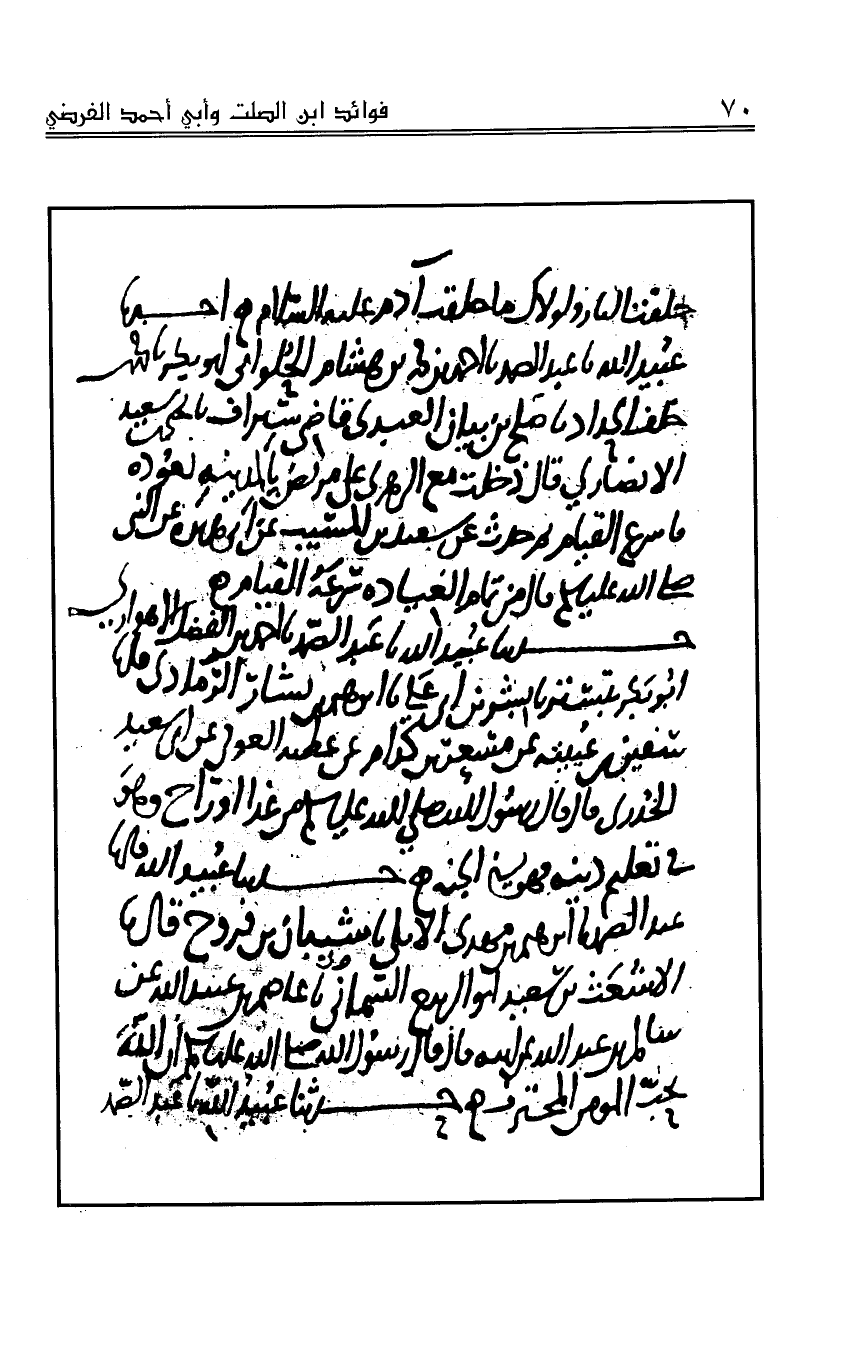 ٧٠
فوائد ابن الصلت وأبي أحمد الفرضي
خلقت النار ولولاك ما خلقت آدم عليه السلام ه اخبرنا
عبيد الله نا عبد الصمد نا احمد بن محمد بن هشام ابو بكر نا
خلف الحداد نا صلح بن بيان العبدي قاضي سيراف نا يحيى بن سعيد
الانصاري قال دخلت مع الزهري على مريض بالمدينه نعوده
فاسرع القيام ثم حدث عن سعيد بن المسيب عن أبي هريره عن النبي
صلى الله عليه وسلم قال من تمام العياده سرعة القيام ه
حدثنا عبيد الله نا عبد الصمد نا احمد بن الفضل الاهوازي
ابو بكر نا ابرهيم بن بشار الرمادي قال نا
سفين بن عيينه عن مسعر بن كدام عن عطيه العوفي عن ابي سعيد
الخدري قال قال رسول الله صلى الله عليه وسلم من غدا او راح وهو
في تعليم دينه فهو في الجنه ه حدثنا عبيد الله قال نا
عبد الصمد نا ابرهيم بن مهدي الابلي نا شيبان بن فروخ قال نا
الاشعث بن سعيد ابو الربيع السمان نا عاصم بن عبيد الله عن
سالم بن عبد الله عن ابيه قال قال رسول الله صلى الله عليه وسلم أن الله
يحب المومن المحترف ه حدثنا عبيد الله نا عبد الصمد